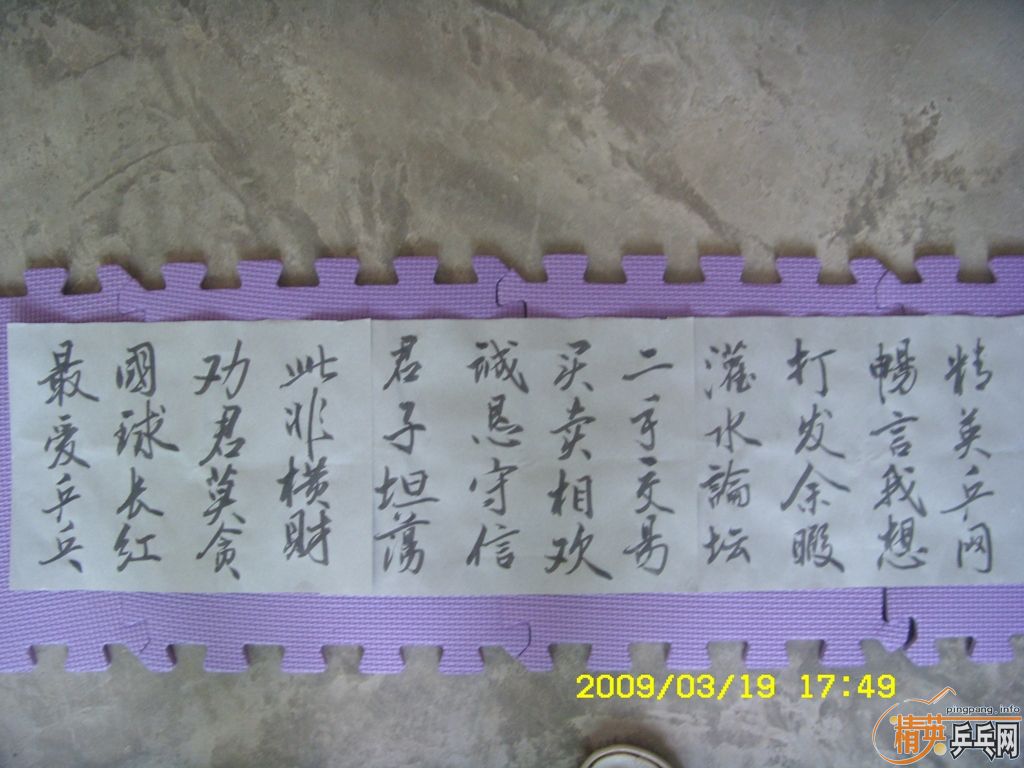 精英乒网
暢言我想
打发余暇
灌水論坛
二手交易
买卖相欢
诚恳守信
君子坦荡
此非横财
劝君莫贪
國球长红
最爱乒乓
2009/03/19 17:49
pingpang.info
精英乒乓网